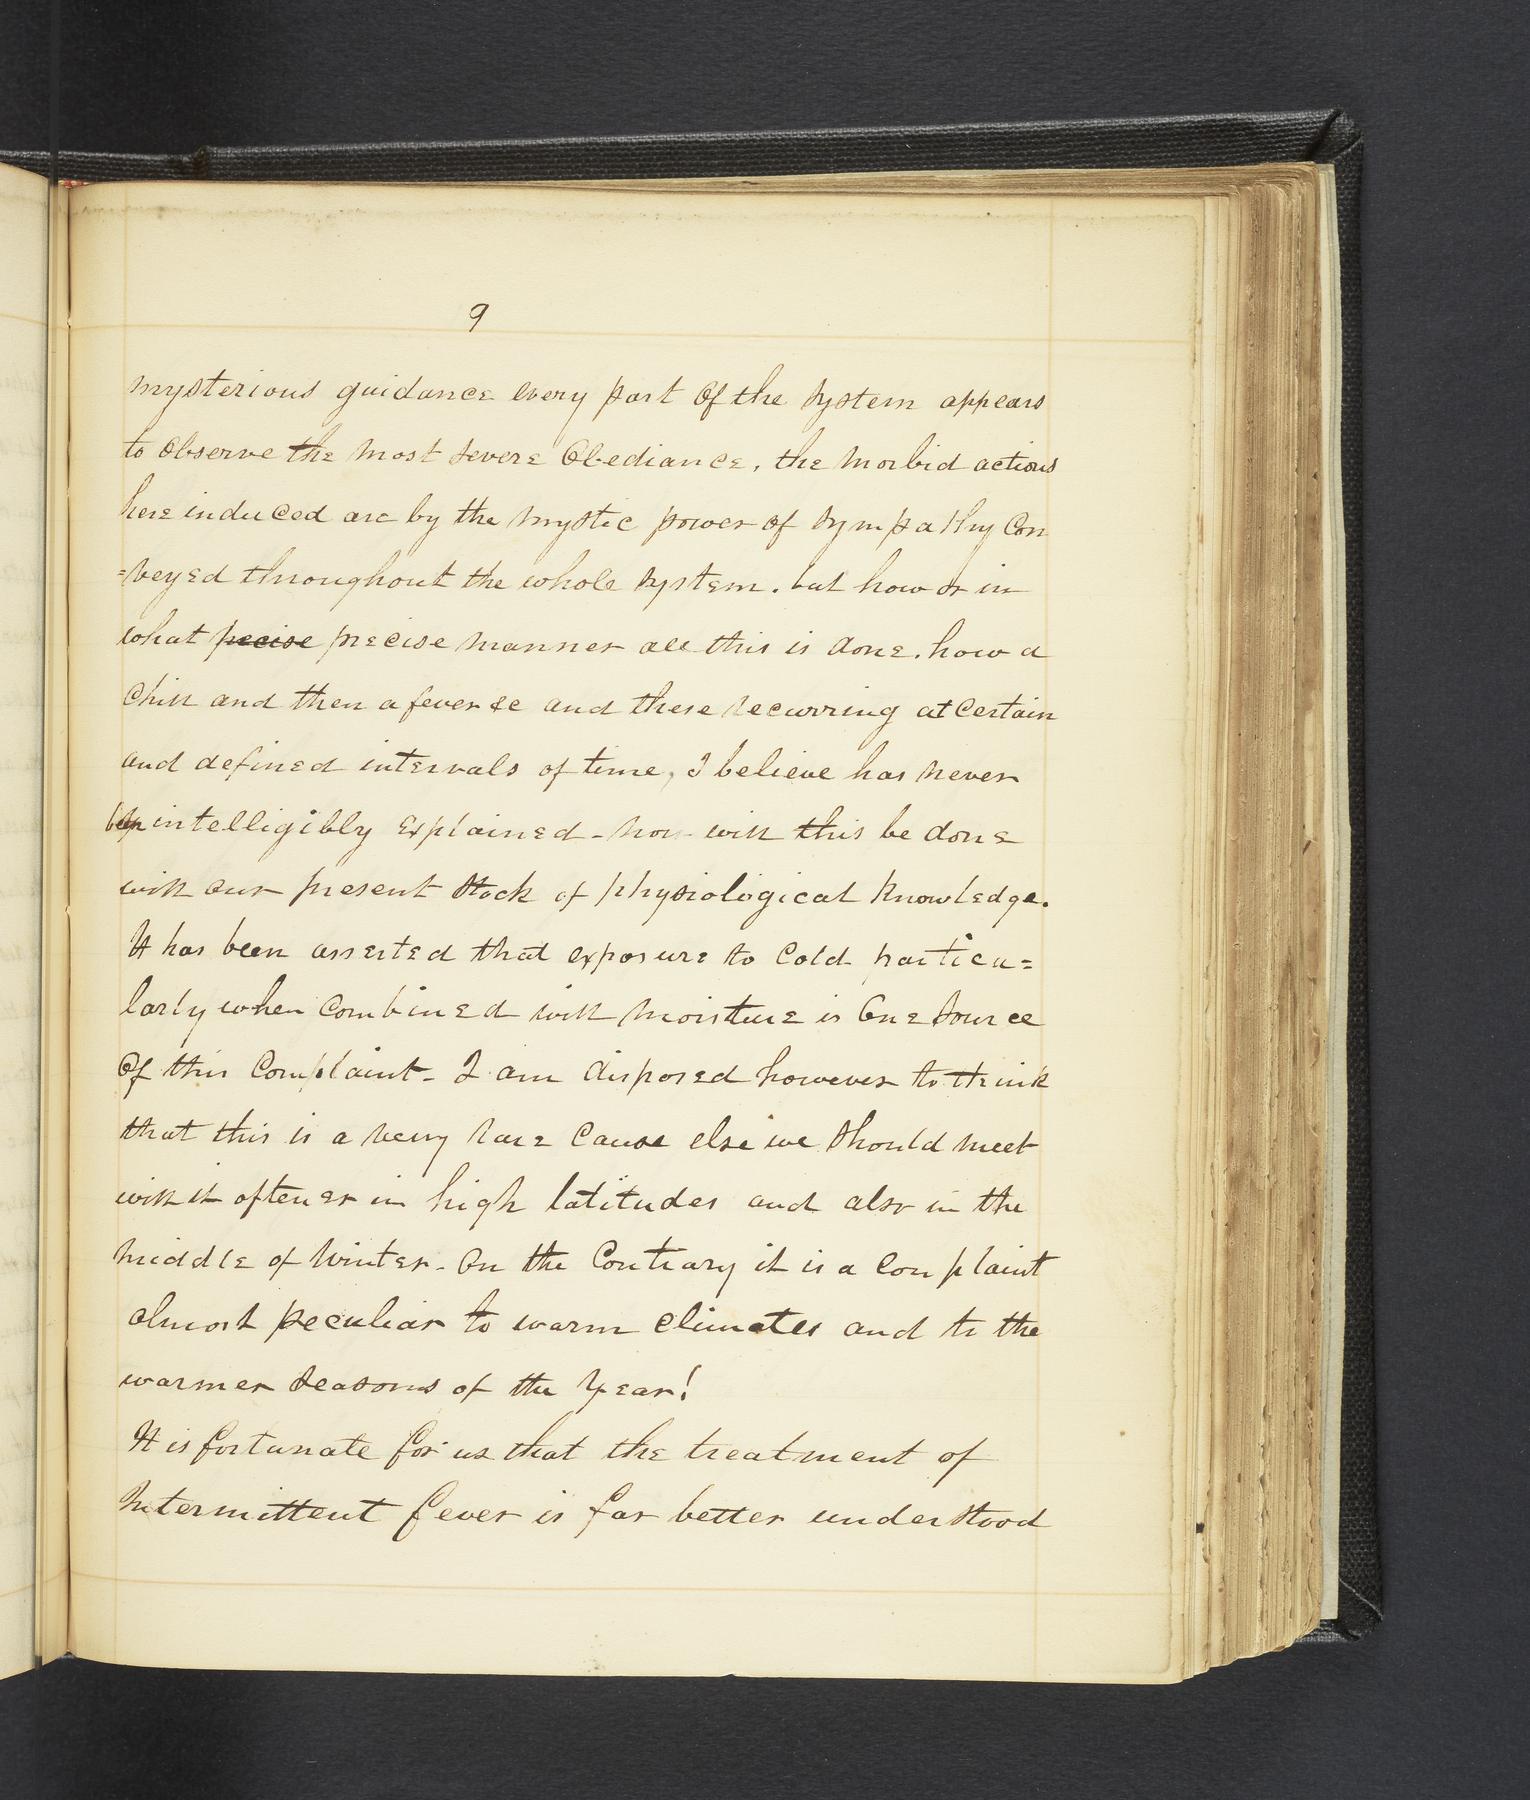 9
mysterious guidance every part Of the system appears
to Observe the most severe Obediance, the morbid actions
here induced are by the mystic power of sympathy Con
=veyed throughout the whole system. but how or in
what pecise precise manner all this is done. how a
Chill and then a fever &c and these recurring at Certain
and defined intervals of time, I believe has never
been intelligibly explained - nor will this be done
with our present Stock of physiological Knowledge.
It has been asserted that exposure to Cold particu=
larly when Combined with moisture is One Source
Of this Complaint - I am disposed however to think
that this is a very rare Cause else we should meet
with it oftener in high latitudes and also in the
middle of Winter - On the Contrary it is a Complaint
almost peculiar to warm climates and to the
warmer seasons of the Year!
It is fortunate for us that the treatment of
Intermittent fever is far better understood